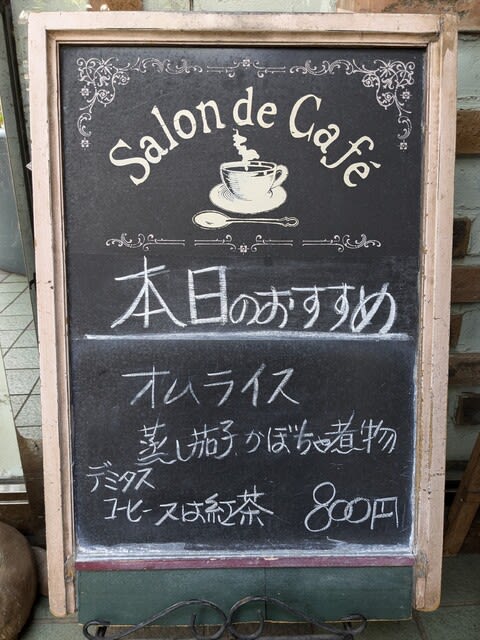 Salon de Café
本日のおすすめ
オムライス
蒸し茄子、かぼちゃ煮物
デミタス
コーヒー又は紅茶 800円